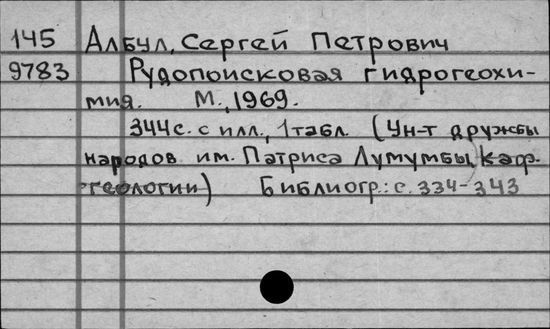 145 Албул, Сергей Петрович
9783 Рудопоисковая гидрогеохи-
мия. М., 1969.
344с. с илл., 1табл. (Ун-т дружбы
народов им. Патриса Лумумбы, Каф.
геологии) Библиогр.: с. 334-343